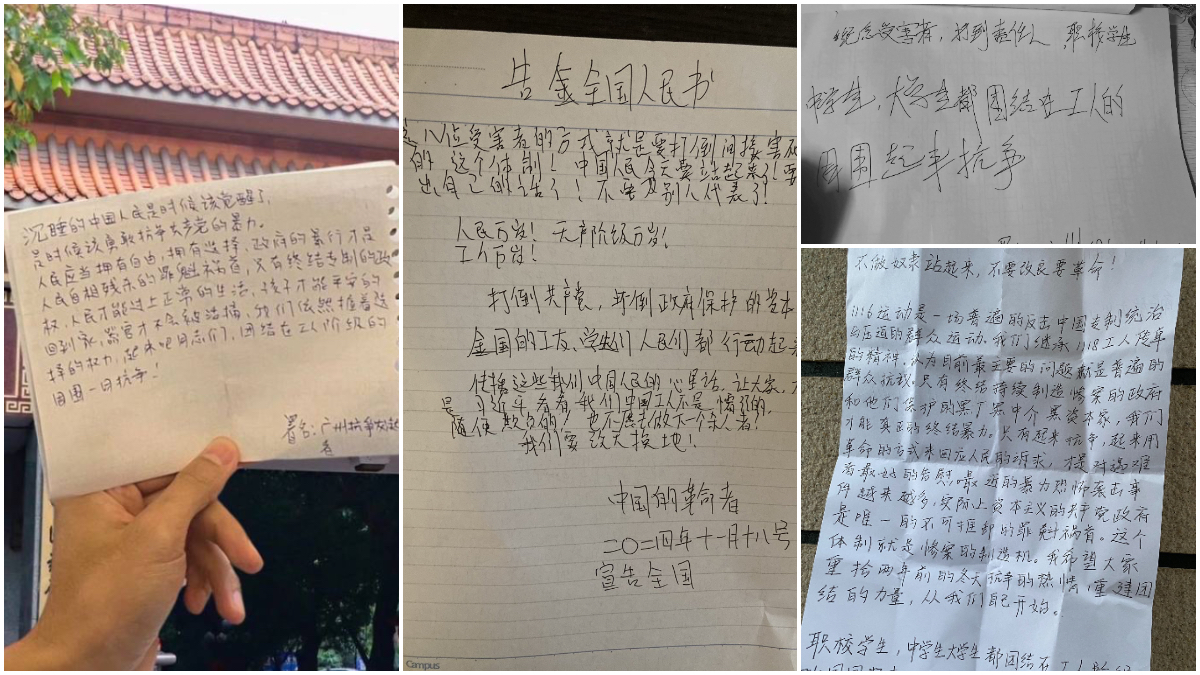 沉睡的中国人民是时候该觉醒了,
是时候该勇敢抗争共产党的暴力。
人民应当拥有自由,拥有选择,政府的暴行才是
人民自相残杀的罪魁祸首,只有终结专制的政
权,人民才能过上正常的生活,孩子才能平安的
回到家,器官才不会被活摘,我们依然握着选
择的权力,起来吧同志们,团结在工人阶级的
周围一同抗争!
署名:广州抗争发起
者
告全国人民书
八位受害者的方式就是要打倒间接害死
的这个体制!中国人民今天要站起来了!要
出自己的话了!不要被别人代表了!
人民万岁!无产阶级万岁!
工人万岁!
打倒共产党,打倒政府保护的资本
全国的工友、学生们人民们都行动起来
传播这些我们中国人民的心里话。让大家,
是 习近平看看,我们中国工人不是惰弱的。
随便欺负的!也不愿去做下一个杀人者!
我们要改天换地!
中国的革命者
二〇二四年十一月十八号
宣告全国
Campus
悼念受害者,找到责任人 职校学生
中学生,大学生都团结在工人的
周围起来抗争
不做奴隶站起来,不要改良要革命!
1118运动是一场普遍的反击中国专制统治
和压迫的群众运动。我们继承1118工人改革
的精神,认为目前最主要的问题就是普遍的
群众抗议。只有终结持续制造惨案的政府
和他们保护的黑厂黑中介黑资本家,我们
才能真正的终结暴力。只有起来抗争,起来用
革命的方式来回应人民的诉求,才是对遇难
者最好的告慰。最近的暴力恐怖袭击事
件越来越多,实际上资本主义的共产党政府
是唯一的不可推卸的罪魁祸首。这个
体制就是惨案的制造机。我希望大家
重拾两年前的冬天抗争的热情,重建团
结的力量,从我们自己开始。
职校学生,中学生大学生都团结在工人阶级